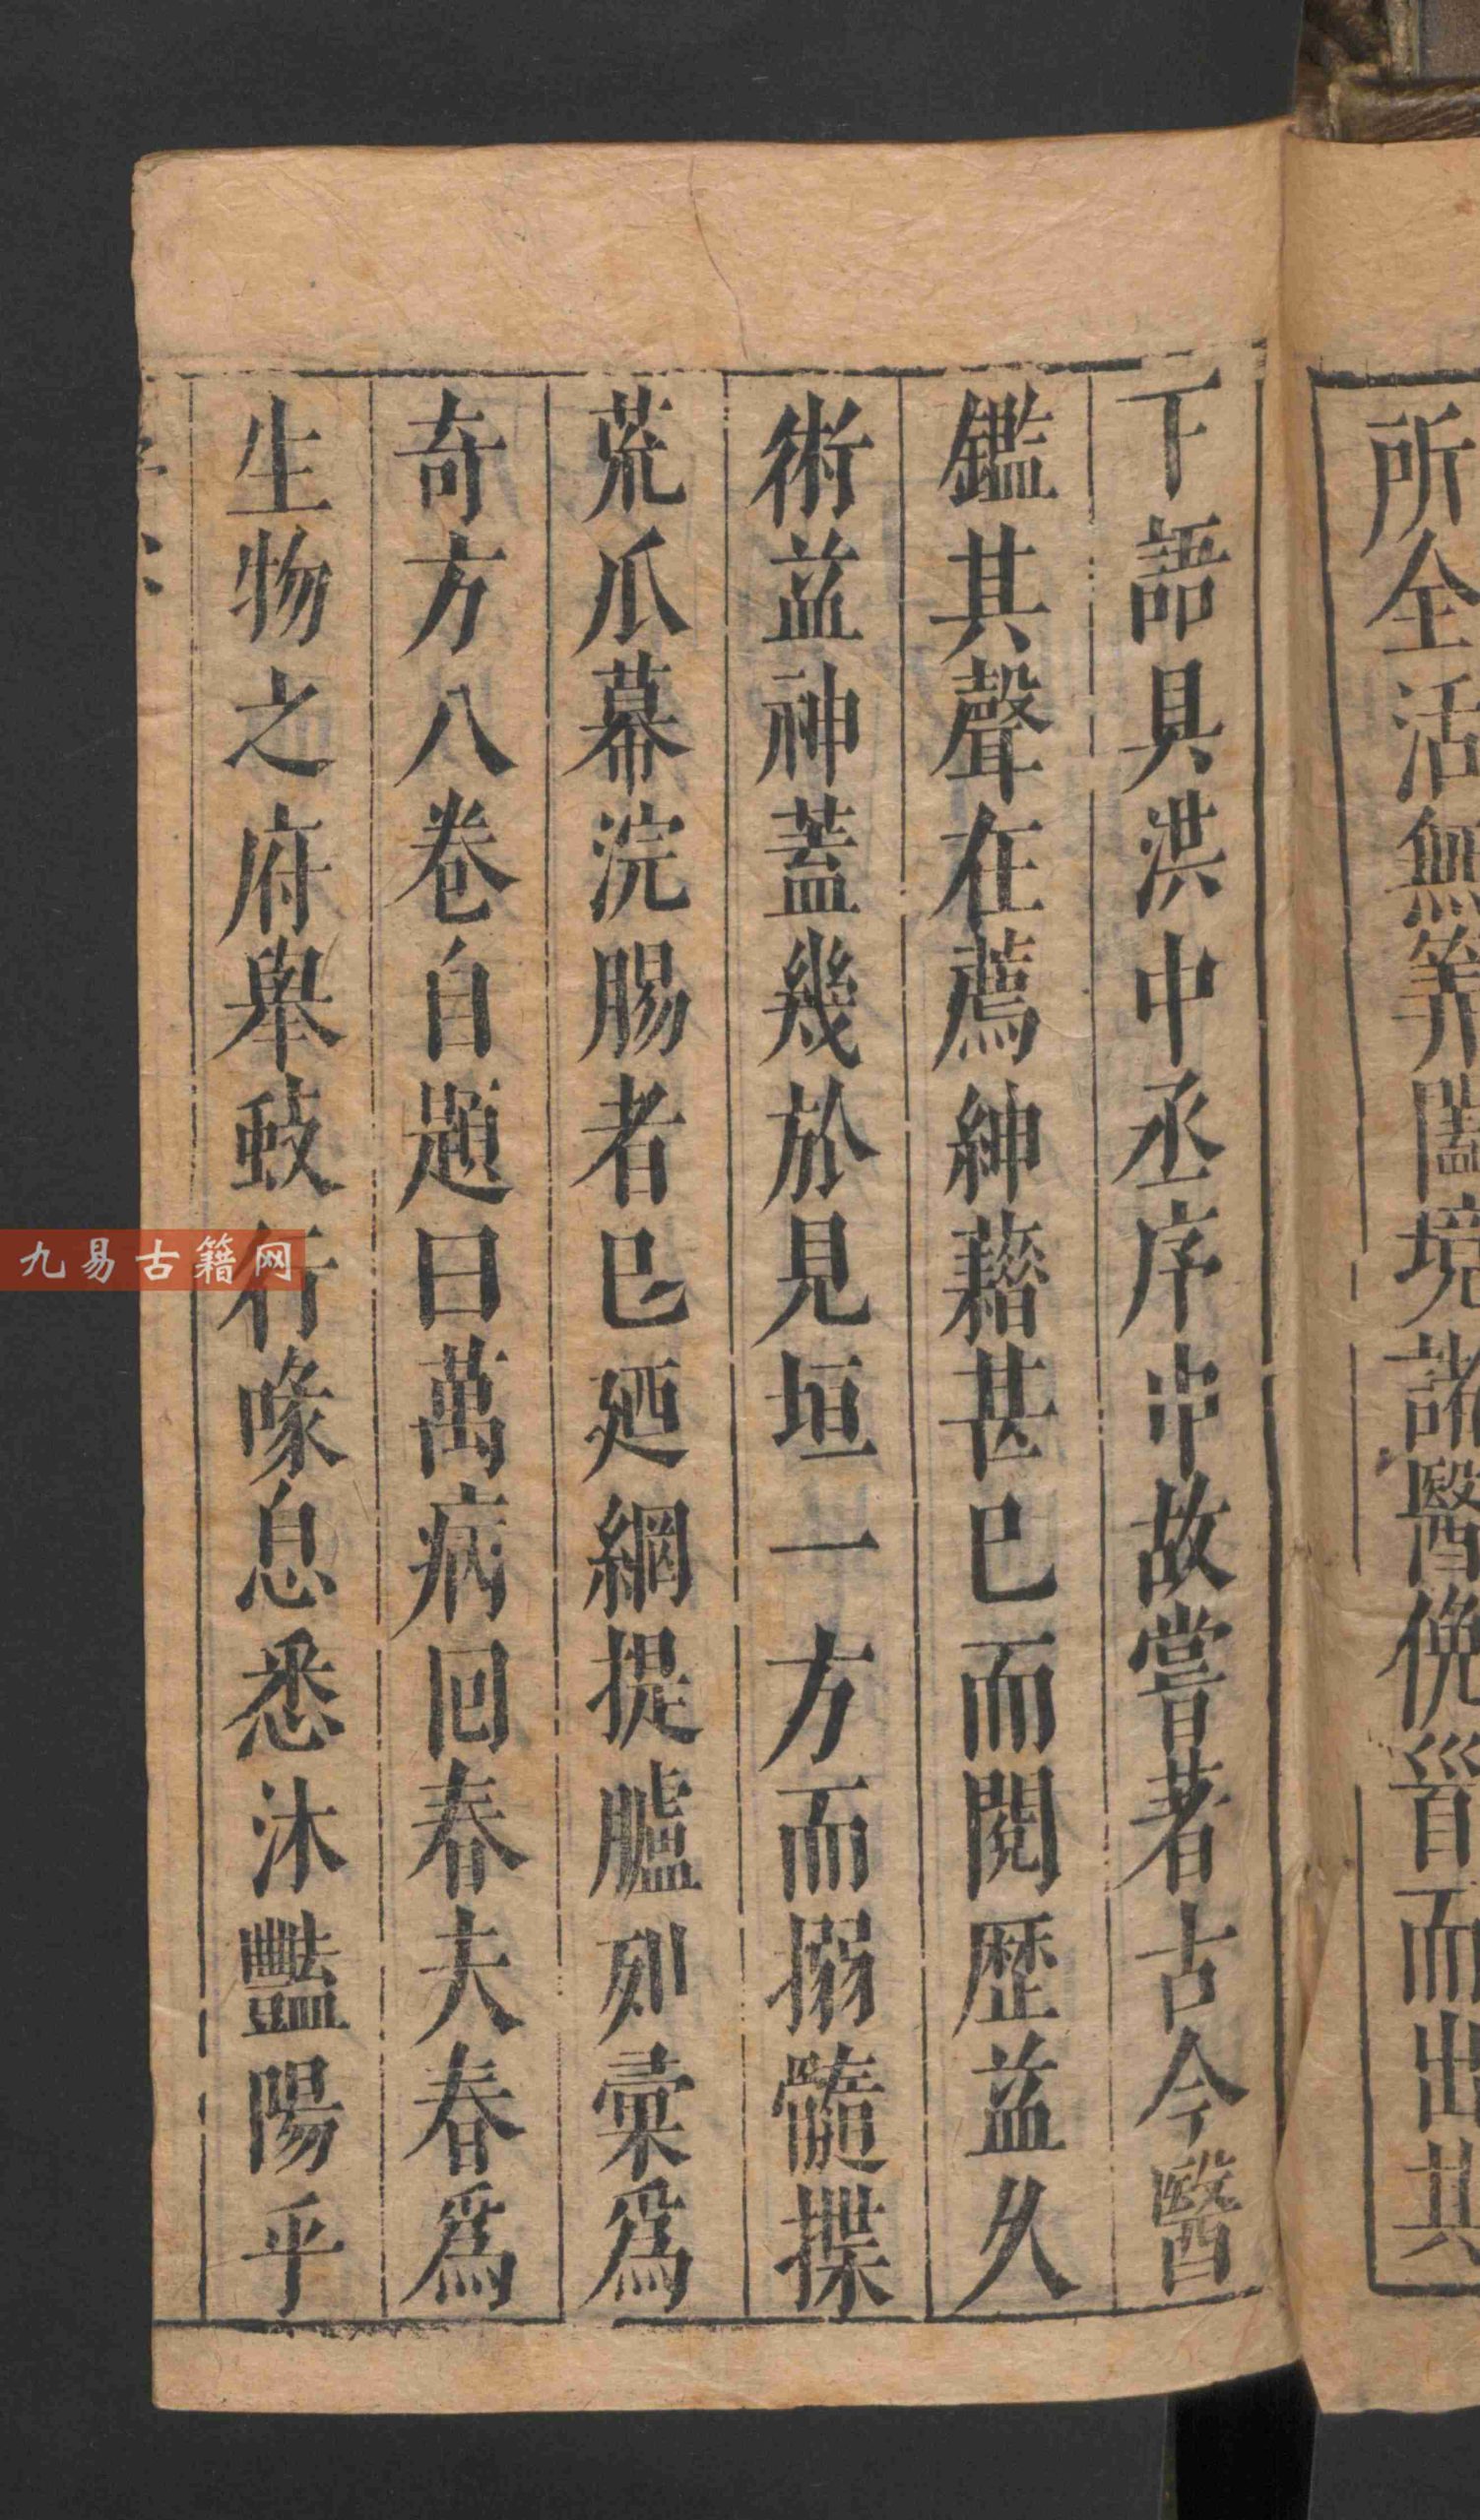 所全活無筭闔境諸醫俛首而出其
下語具洪中丞序中故嘗著古今醫
鑑其聲在薦紳藉甚已而閱歷益久
術益神蓋幾於見垣一方而搦髓揲
荒爪幕浣腸者已廼網提臚列彙為
奇方八卷自題曰萬病回春夫春為
生物之府舉蚑行喙息悉沐豔陽乎
九易古籍网